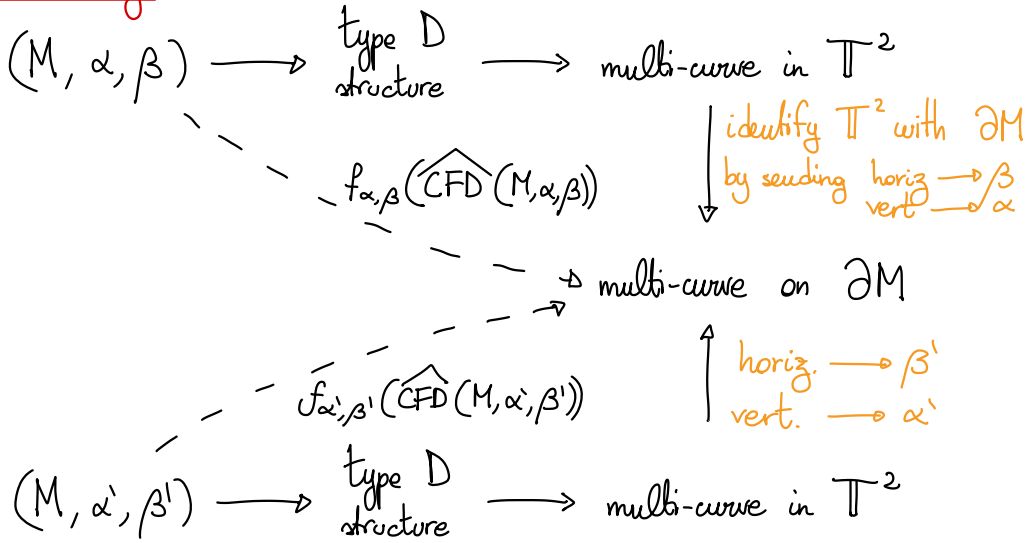 (M, α, β) → type D structure → multi-curve in 𝕋²
identify 𝕋² with ∂M
by sending horiz → β
vert → α
f_{α,β}(\widehat{CFD}(M,α,β))
multi-curve on ∂M
horiz. → β'
f_{α',β'}(\widehat{CFD}(M,α',β'))
vert. → α'
(M, α', β') → type D structure → multi-curve in 𝕋²